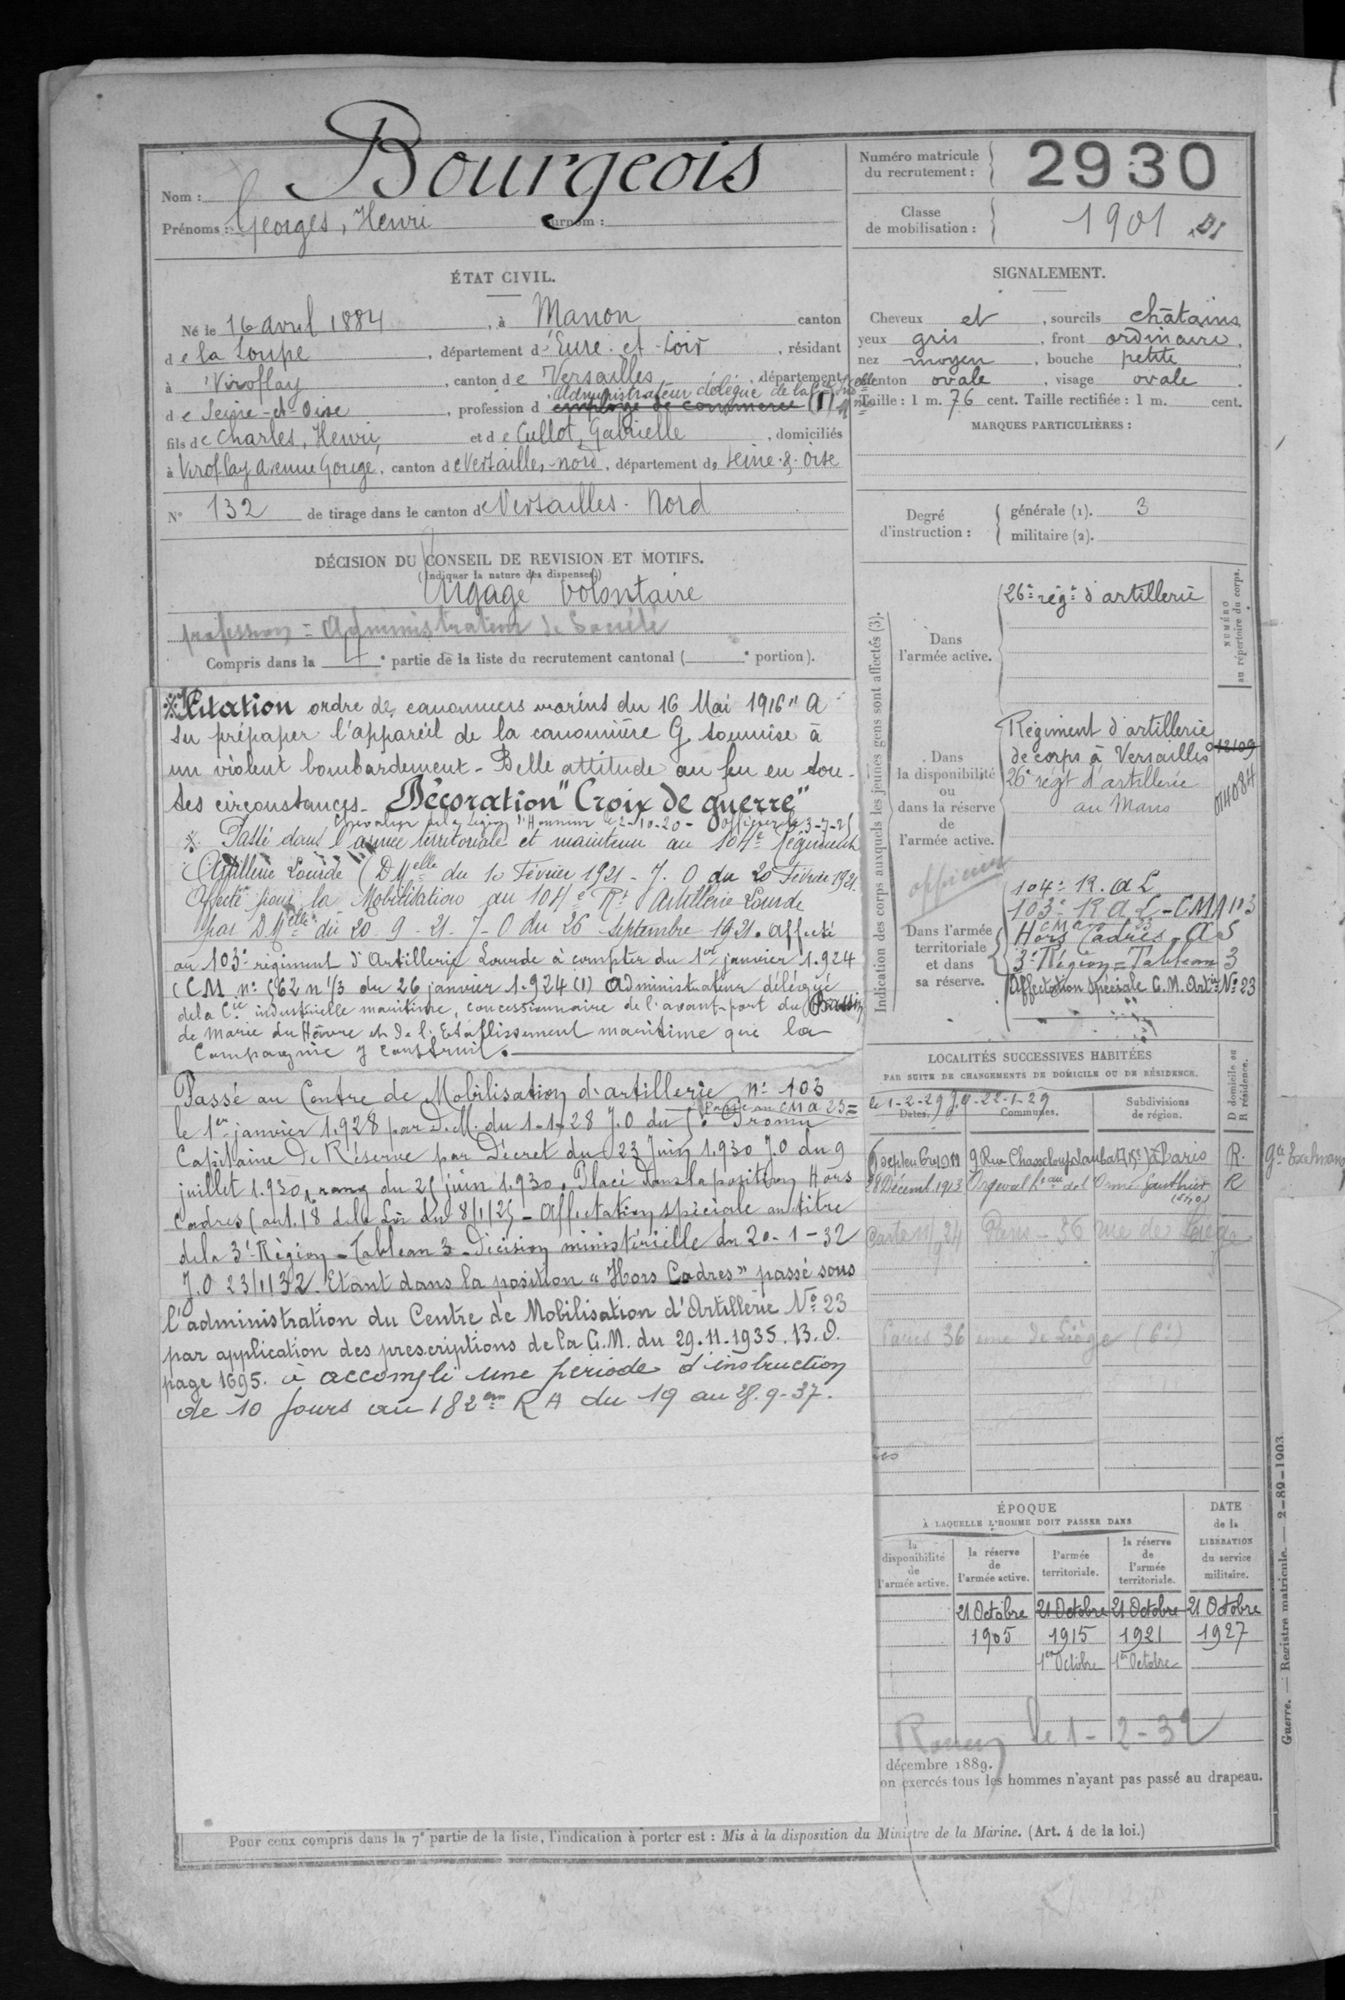 Nom : Bourgeois
Prénoms : Georges, Henri Surnom :
Numéro matricule du recrutement : 2930
Classe de mobilisation : 1901
ÉTAT CIVIL.
Né le 16 avril 1884, à Manon canton
de la Loupe, département d'Eure-et-Loir, résidant
à Viroflay, canton de Versailles, département
Administrateur délégué de la
de Seine-et-Oise, profession d employé de commerce (1)
fils de Charles, Henri, et de Cullot, Gabrielle, domiciliés
à Viroflay avenue Gouge, canton de Versailles-nord, département de Seine-&-Oise
N° 132 de tirage dans le canton de Versailles-Nord
SIGNALEMENT.
Cheveux et, sourcils châtains,
yeux gris, front ordinaire,
nez moyen, bouche petite,
menton ovale, visage ovale.
Taille : 1 m. 76 cent. Taille rectifiée : 1 m. cent.
MARQUES PARTICULIÈRES :
Degré d'instruction : générale (1). 3
militaire (2).
DÉCISION DU CONSEIL DE REVISION ET MOTIFS.
(Indiquer la nature des dispenses.)
Engagé volontaire
profession = Administrateur de Société
Compris dans la 4e partie de la liste du recrutement cantonal ( e portion).
Citation ordre des canonniers marins du 16 Mai 1916 " A
su prépaper l'appareil de la canonnière G soumise à
un violent bombardement - Belle attitude au feu en tou-
tes circonstances - Décoration "Croix de guerre"
Chevalier de la Légion d'Honneur le 2-10-20 - Officier le 3-7-25
Passé dans l'armée territoriale et maintenu au 104e Régiment
Artillerie Lourde (D Melle du 10 Février 1921 - J.O du 20 Février 1921.
Affecté pour la Mobilisation au 104e Rt Artillerie Lourde
par D Melle du 20-9-21-J-O du 26 Septembre 1921. affecté
au 103e régiment d'Artillerie Lourde à compter du 1er janvier 1.924
(CM n° 062 n 1/3 du 26 janvier 1.924 (1) administrateur délégué
de la Cie industrielle maritime, concessionnaire de l'avant-port du Bassin
de marée du Hâvre et de l'Etablissement maritime que la
Compagnie y construit.
Passé au Centre de Mobilisation d'artillerie n° 103
Passé au CMA 23 =
le 1er janvier 1.928 par D.M. du 1-1-28 J.O du 5. Promu
Capitaine de Réserve par Décret du 23 Juin 1.930 J.O du 9
juillet 1.930, rang du 25 juin 1.930. Placé dans la position Hors
Cadres (art. 18 de la Loi du 8/1/25 - Affectation spéciale au titre
de la 3e Région - Tableau 3 - Décision ministérielle du 20-1-32
J.O 23/1/32. Etant dans la position "Hors Cadres" passé sous
l'administration du Centre de Mobilisation d'Artillerie N° 23
par application des prescriptions de la C.M. du 29.11.1935. B.O.
page 1695. a accompli une période d'instruction
de 10 jours au 182ème RA du 19 au 28.9.37.
Indication des corps auxquels les jeunes gens sont affectés (3).
NUMÉRO au répertoire du corps.
Dans l'armée active. 26e régt d'artillerie
Dans la disponibilité ou dans la réserve de l'armée active.
Régiment d'artillerie
de corps à Versailles 12109
26e régt d'artillerie
au Mans 014084
officier
Dans l'armée territoriale et dans sa réserve.
104e R.A.L
103e R A L - CMA 103
CMA 23
Hors Cadres - A S
3e Région - Tableau 3
Affectation spéciale C.M. Artie N° 23
LOCALITÉS SUCCESSIVES HABITÉES
PAR SUITE DE CHANGEMENTS DE DOMICILE OU DE RÉSIDENCE.
le 1-2-29 J.O. 22-1-29
Dates. Communes. Subdivisions de région. D domicile ou R résidence.
9 Rue Chasseloup Laubat 15e Paris R.
28 Décemb. 1913 Orgeval R
Paris - 36 rue de Liège
Paris 36 rue de Liège
ÉPOQUE
À LAQUELLE L'HOMME DOIT PASSER DANS
la disponibilité de l'armée active.
la réserve de l'armée active.
l'armée territoriale.
la réserve de l'armée territoriale.
DATE de la LIBÉRATION du service militaire.
21 Octobre 21 Octobre 21 Octobre 21 Octobre
1905 1915 1921 1927
1er Octobre 1er Octobre
Rouen le 1-2-32
décembre 1889.
on exercés tous les hommes n'ayant pas passé au drapeau.
Pour ceux compris dans la 7e partie de la liste, l'indication à porter est : Mis à la disposition du Ministre de la Marine. (Art. 4 de la loi.)
Guerre. — Registre matricule. — 2-89-1903